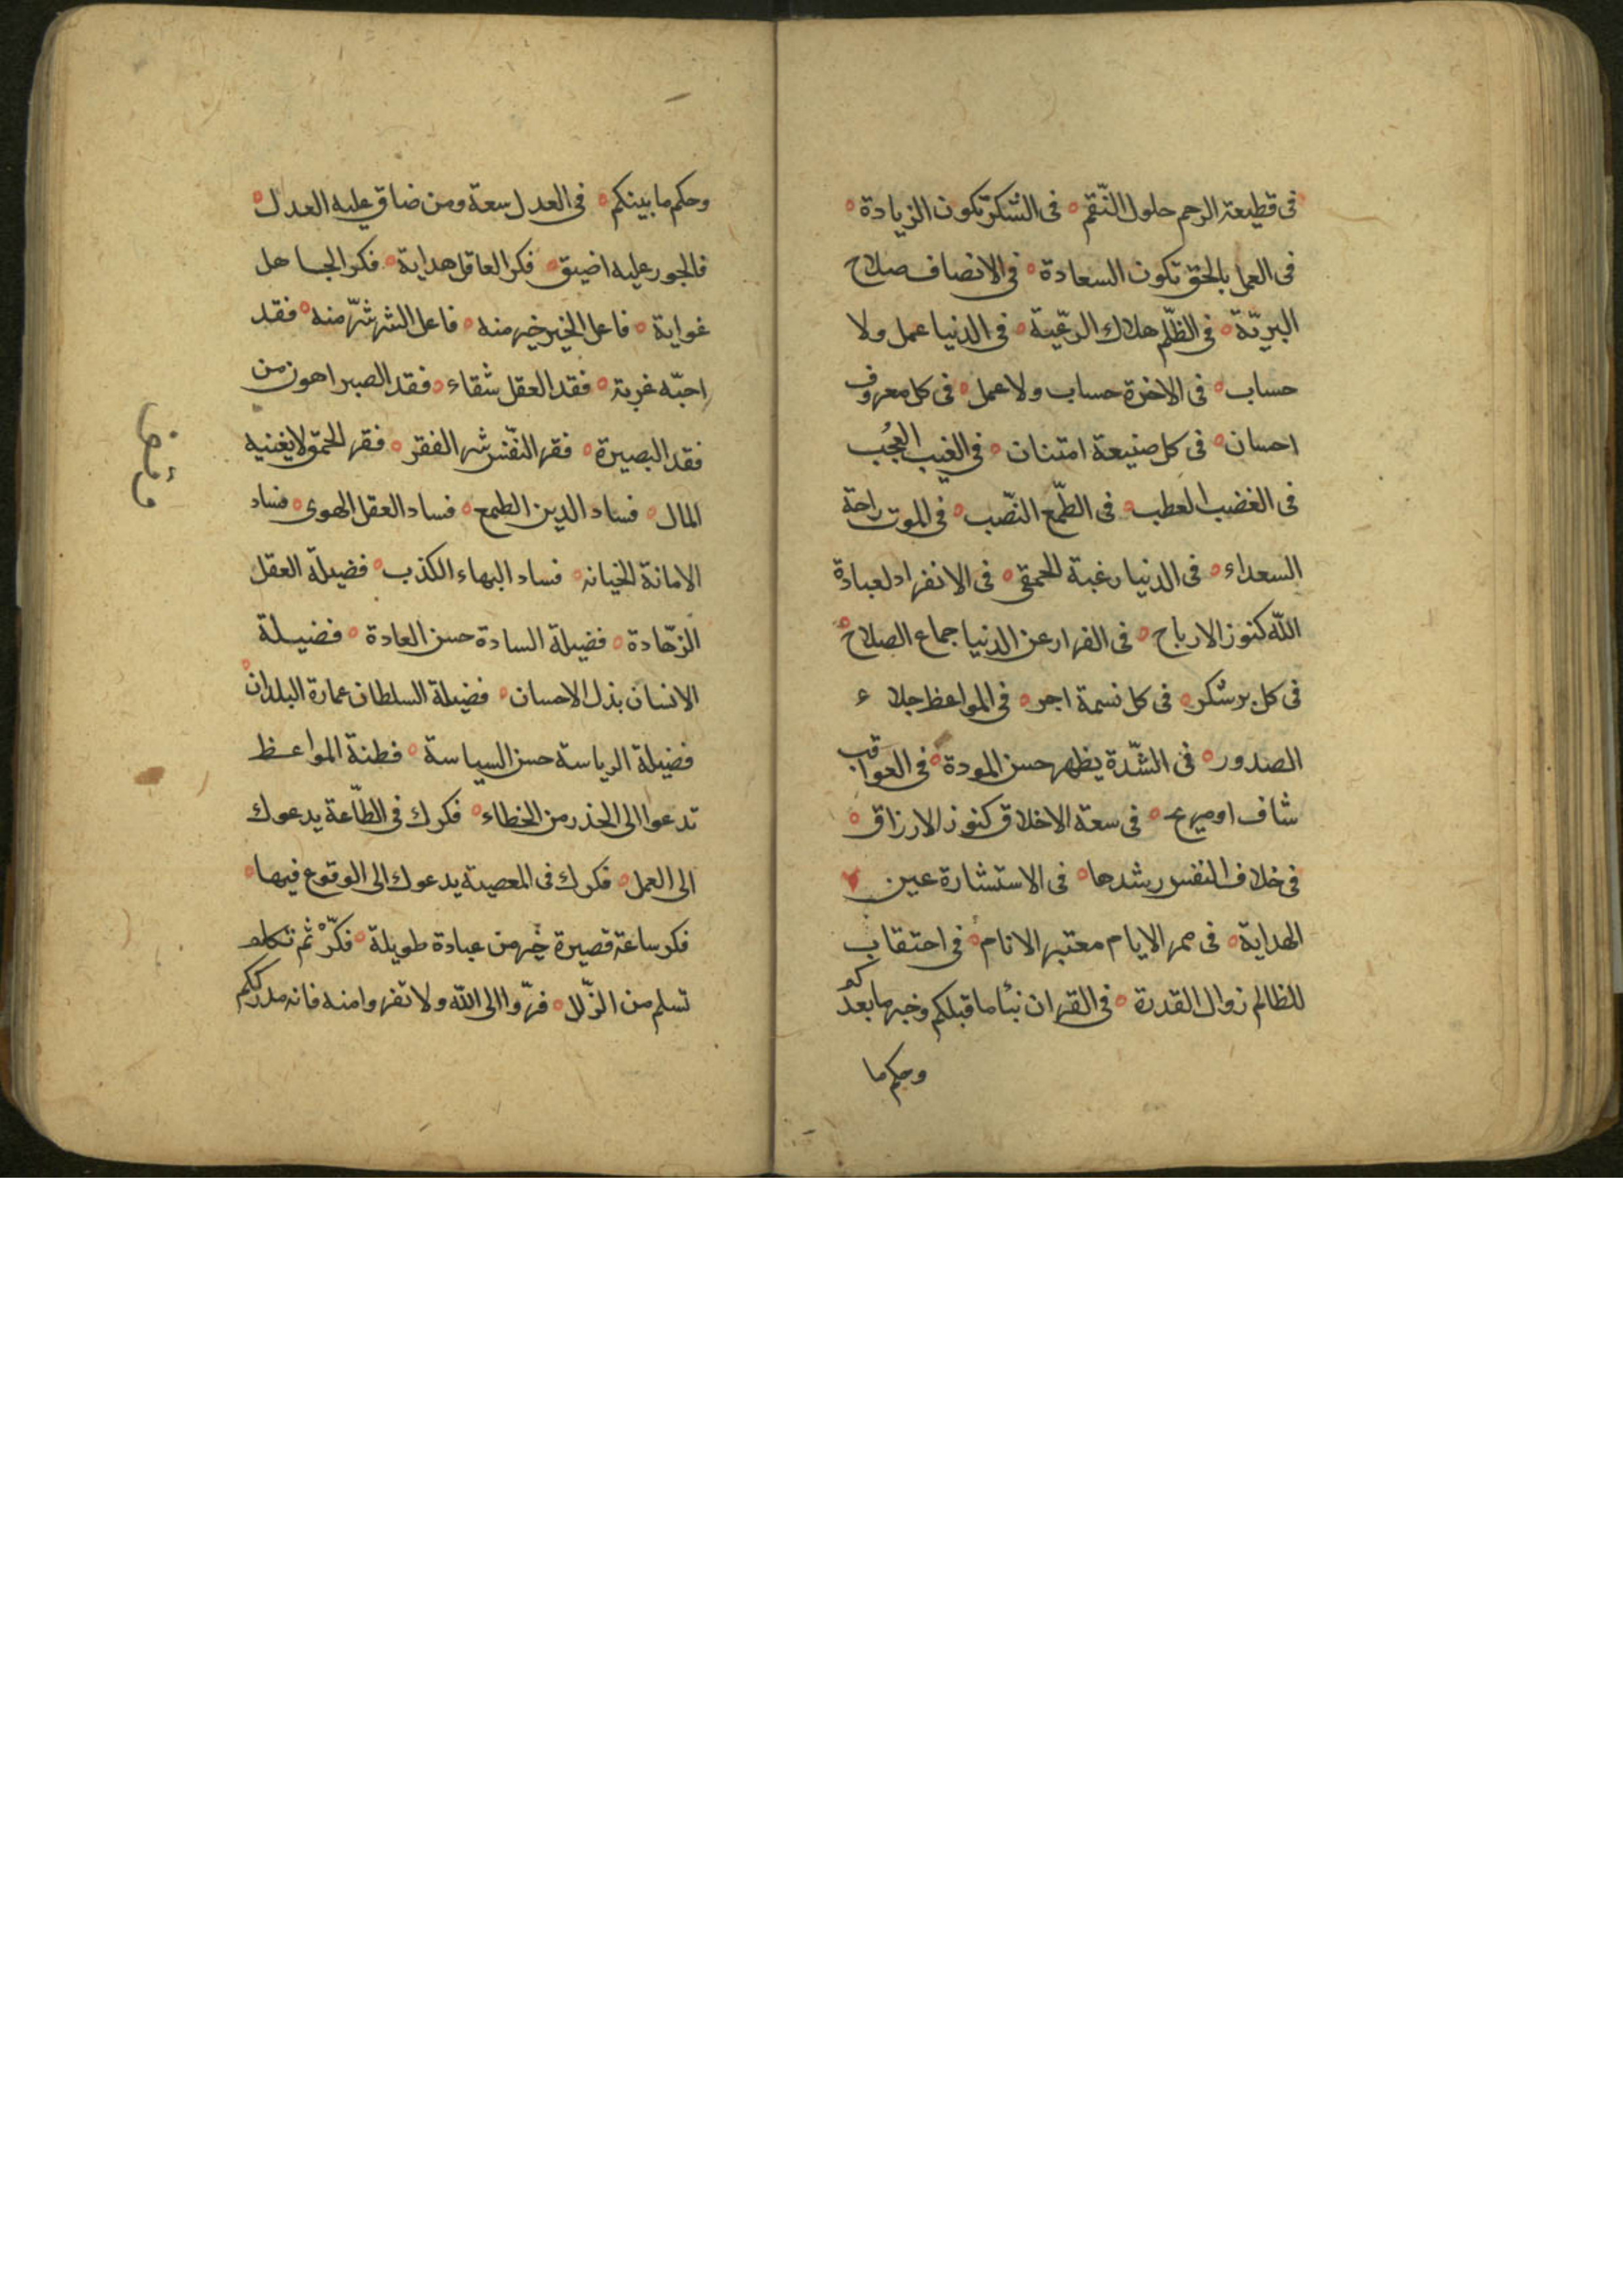 فى قطيعة الرحم حلول النّقم ه فى الشكر تكون الزيادة ه
فى العمل بالحق تكون السعادة ه فى الانصاف صلاح
البريّة ه فى الظّلم هلاك الرعّية ه فى الدنيا عمل ولا
حساب ه فى الاخرة حساب ولا عمل ه فى كل معروف
احسان ه فى كل صنيعة امتنان ه فى الغيب العجب
فى الغضب العطب ه فى الطّمع النّصب ه فى الموت راحة
السعداء ه فى الدنيا رغبة الحمقى ه فى الانفراد لعبادة
الله كنوز الارباح ه فى الفرار عن الدنيا جماع الصلاح ه
فى كل بر شكر ه فى كل نسمة اجر ه فى المواعظ جلاء
الصدور ه فى الشّدة يظهر حسن المودة ه فى العواقب
شاف او مريح ه فى سعة الاخلاق كنوز الارزاق ه
فى خلاف النفس رشدها ه فى الاستشارة عين
الهداية ه فى ممر الايام معتبر الانام ه فى احتقاب
للظالم زوال القدرة ه فى القران نبأ ما قبلكم وخبر ما بعدكم
وحكم ما
وحكم ما بينكم ه فى العدل سعة ومن ضاق عليه العدل ه
فالجور عليه اضيق ه فكر العاقل هداية ه فكر الجاهل
غواية ه فاعل الخير خير منه ه فاعل الشر شرّ منه ه فقد
احبّه غربة ه فقد العقل شقاء ه فقد الصبر اهون من
فقد البصيرة ه فقر النّفس شر الفقر ه فقر الحمق لا يغنيه
المال ه فساد الدين الطمع ه فساد العقل الهوى ه فساد
الامانة الخيانه ه فساد البهاء الكذب ه فضيلة العقل
الزهّادة ه فضيلة السادة حسن العادة ه فضيلة
الانسان بذل الاحسان ه فضيلة السلطان عمارة البلدان ه
فضيلة الرياسة حسن السياسة ه فطنة المواعظ
تدعوا الى الحذر من الخطاء ه فكرك فى الطّاعة يدعوك
الى العمل ه فكرك فى المعصية يدعوك الى الوقوع فيها ه
فكر ساعة قصيرة خير من عبادة طويلة ه فكّر ثم تكلم
تسلم من الزّلل ه فرّوا الى الله ولا تفروا منه فانه مدرككم